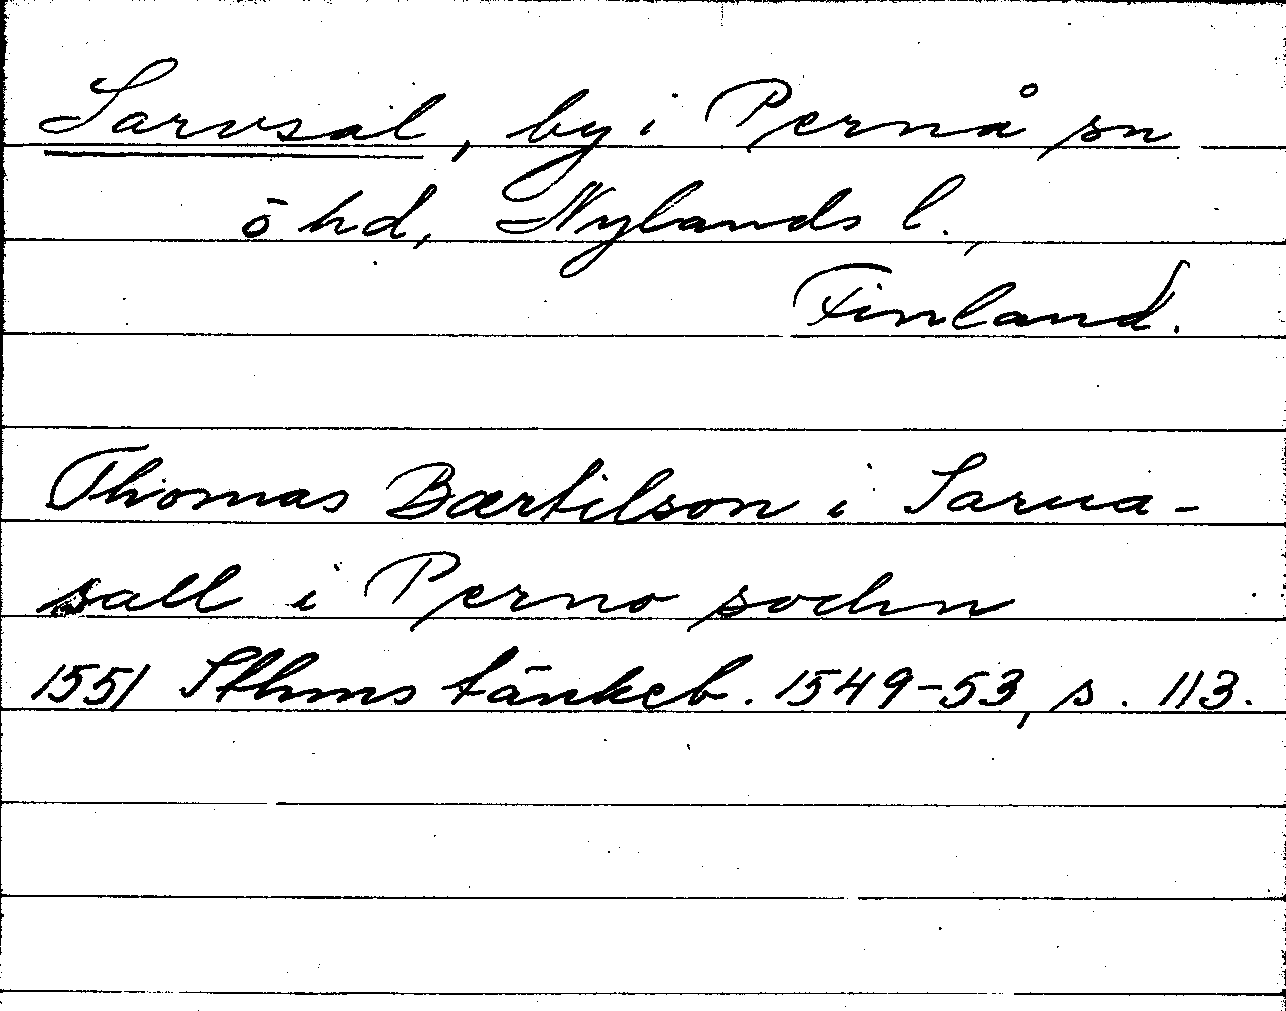 Sarvsal, by i Pernå sn
ö hd, Nylands l.,
Finland.
Thomas Bærtilson i Sarua-
sall i Perno sochn
1551 Sthms tänkeb. 1549-53, s. 113.